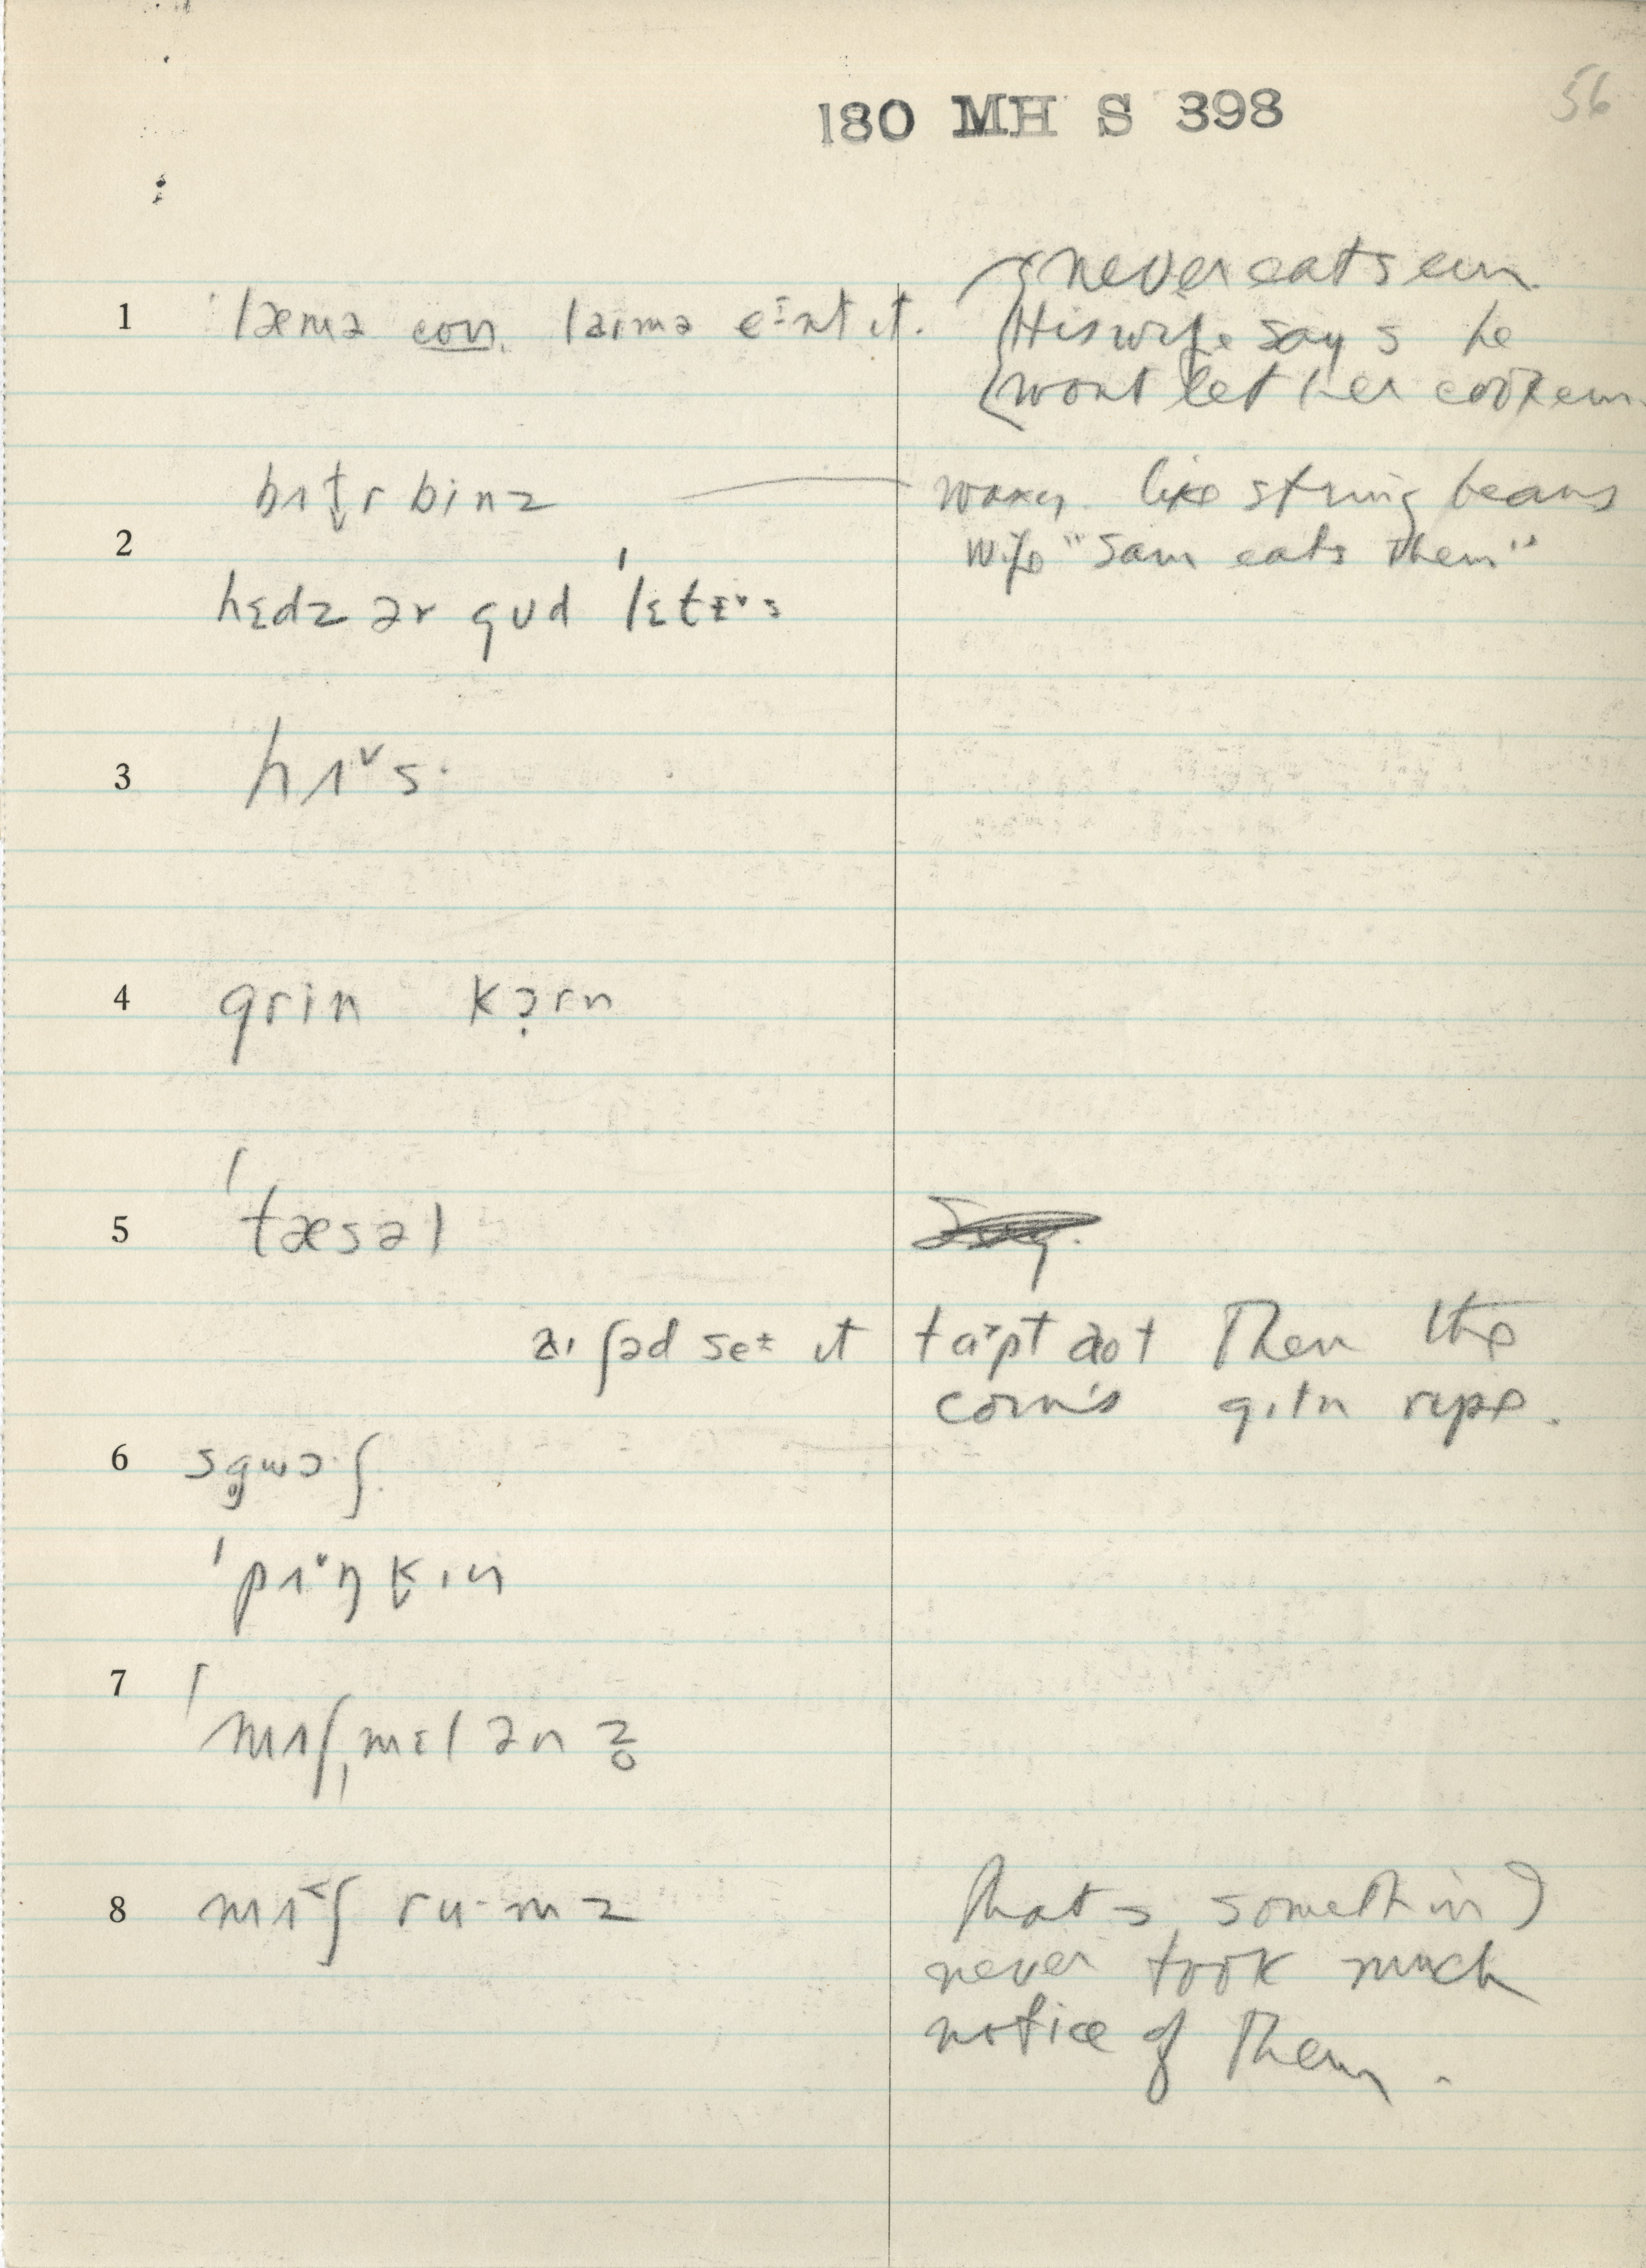 180 MH S 398
56
never eats em.
1 ˈlæmə con. laɪmə it. His wife says he
wont let her cook em.
bʌt̬r binz waxy like string beans
2 wife "Sam eats them"
hɛdz ər gud ˈlɛtɪ˅s
3 hʌ˅s·
4 grin kɔ̣rn
5 ˈtæsəl
aɪ ʃəd it aʊt Then the
corn's gɪtn ripe.
6 sg̥wɔʃ.
ˈpʌ˅ŋk̬ɪn
7 ˈmʌʃˌmɛlənz̥
8 mʌ˂ʃ ru·mz Thats somethin I
never took much
notice of Them.